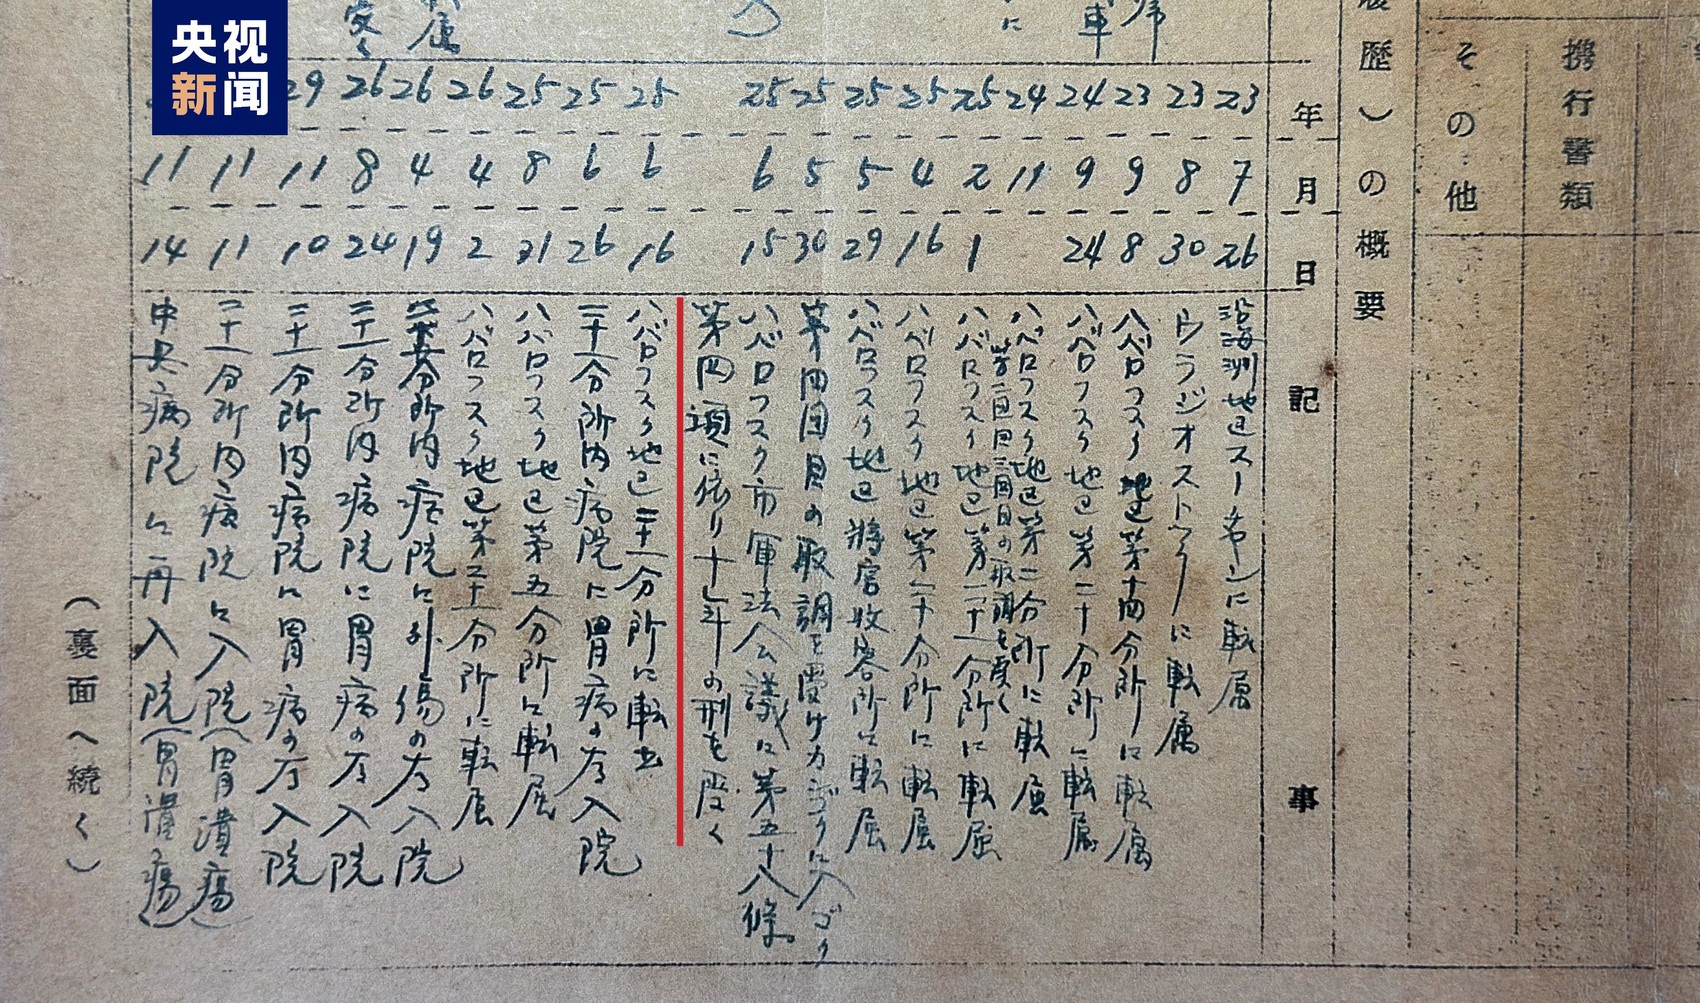 央视
新闻
携行書類
その他
歴)の概要
年
月
日
記事
23 7 26 沿海洲地区スーチャンに転属
23 8 30 ウラジオストックに転属
23 9 8 ハバロフスク地区第十四分所に転属
24 9 24 ハバロフスク地区第二十分所に転属
24 11 ハバロフスク地区第二分所に転属
第一回二回目の取調を受く
25 2 1 ハバロフスク地区第二十一分所に転属
25 4 16 ハバロフスク地区第二十分所に転属
25 5 29 ハバロフスク地区将官収容所に転属
25 5 30 第四回目の取調を受け
25 6 15 ハバロフスク市軍法会議に第五十八條
第四項に依り十年の刑を受く
25 6 16 ハバロフスク地区二十一分所に転
25 6 26 二十一分所内病院に胃病の為入院
25 8 21 ハバロフスク地区第五分所に転属
26 4 2 ハバロフスク地区第二十一分所に転属
26 4 19 分所内病院に外傷の為入院
26 8 24 二十一分所内病院に胃病の為入院
29 11 10 二十一分所内病院に胃病の為入院
11 11 二十一分所内病院に入院(胃潰瘍)
11 14 中央病院に再入院(胃潰瘍)
(裏面へ続く)